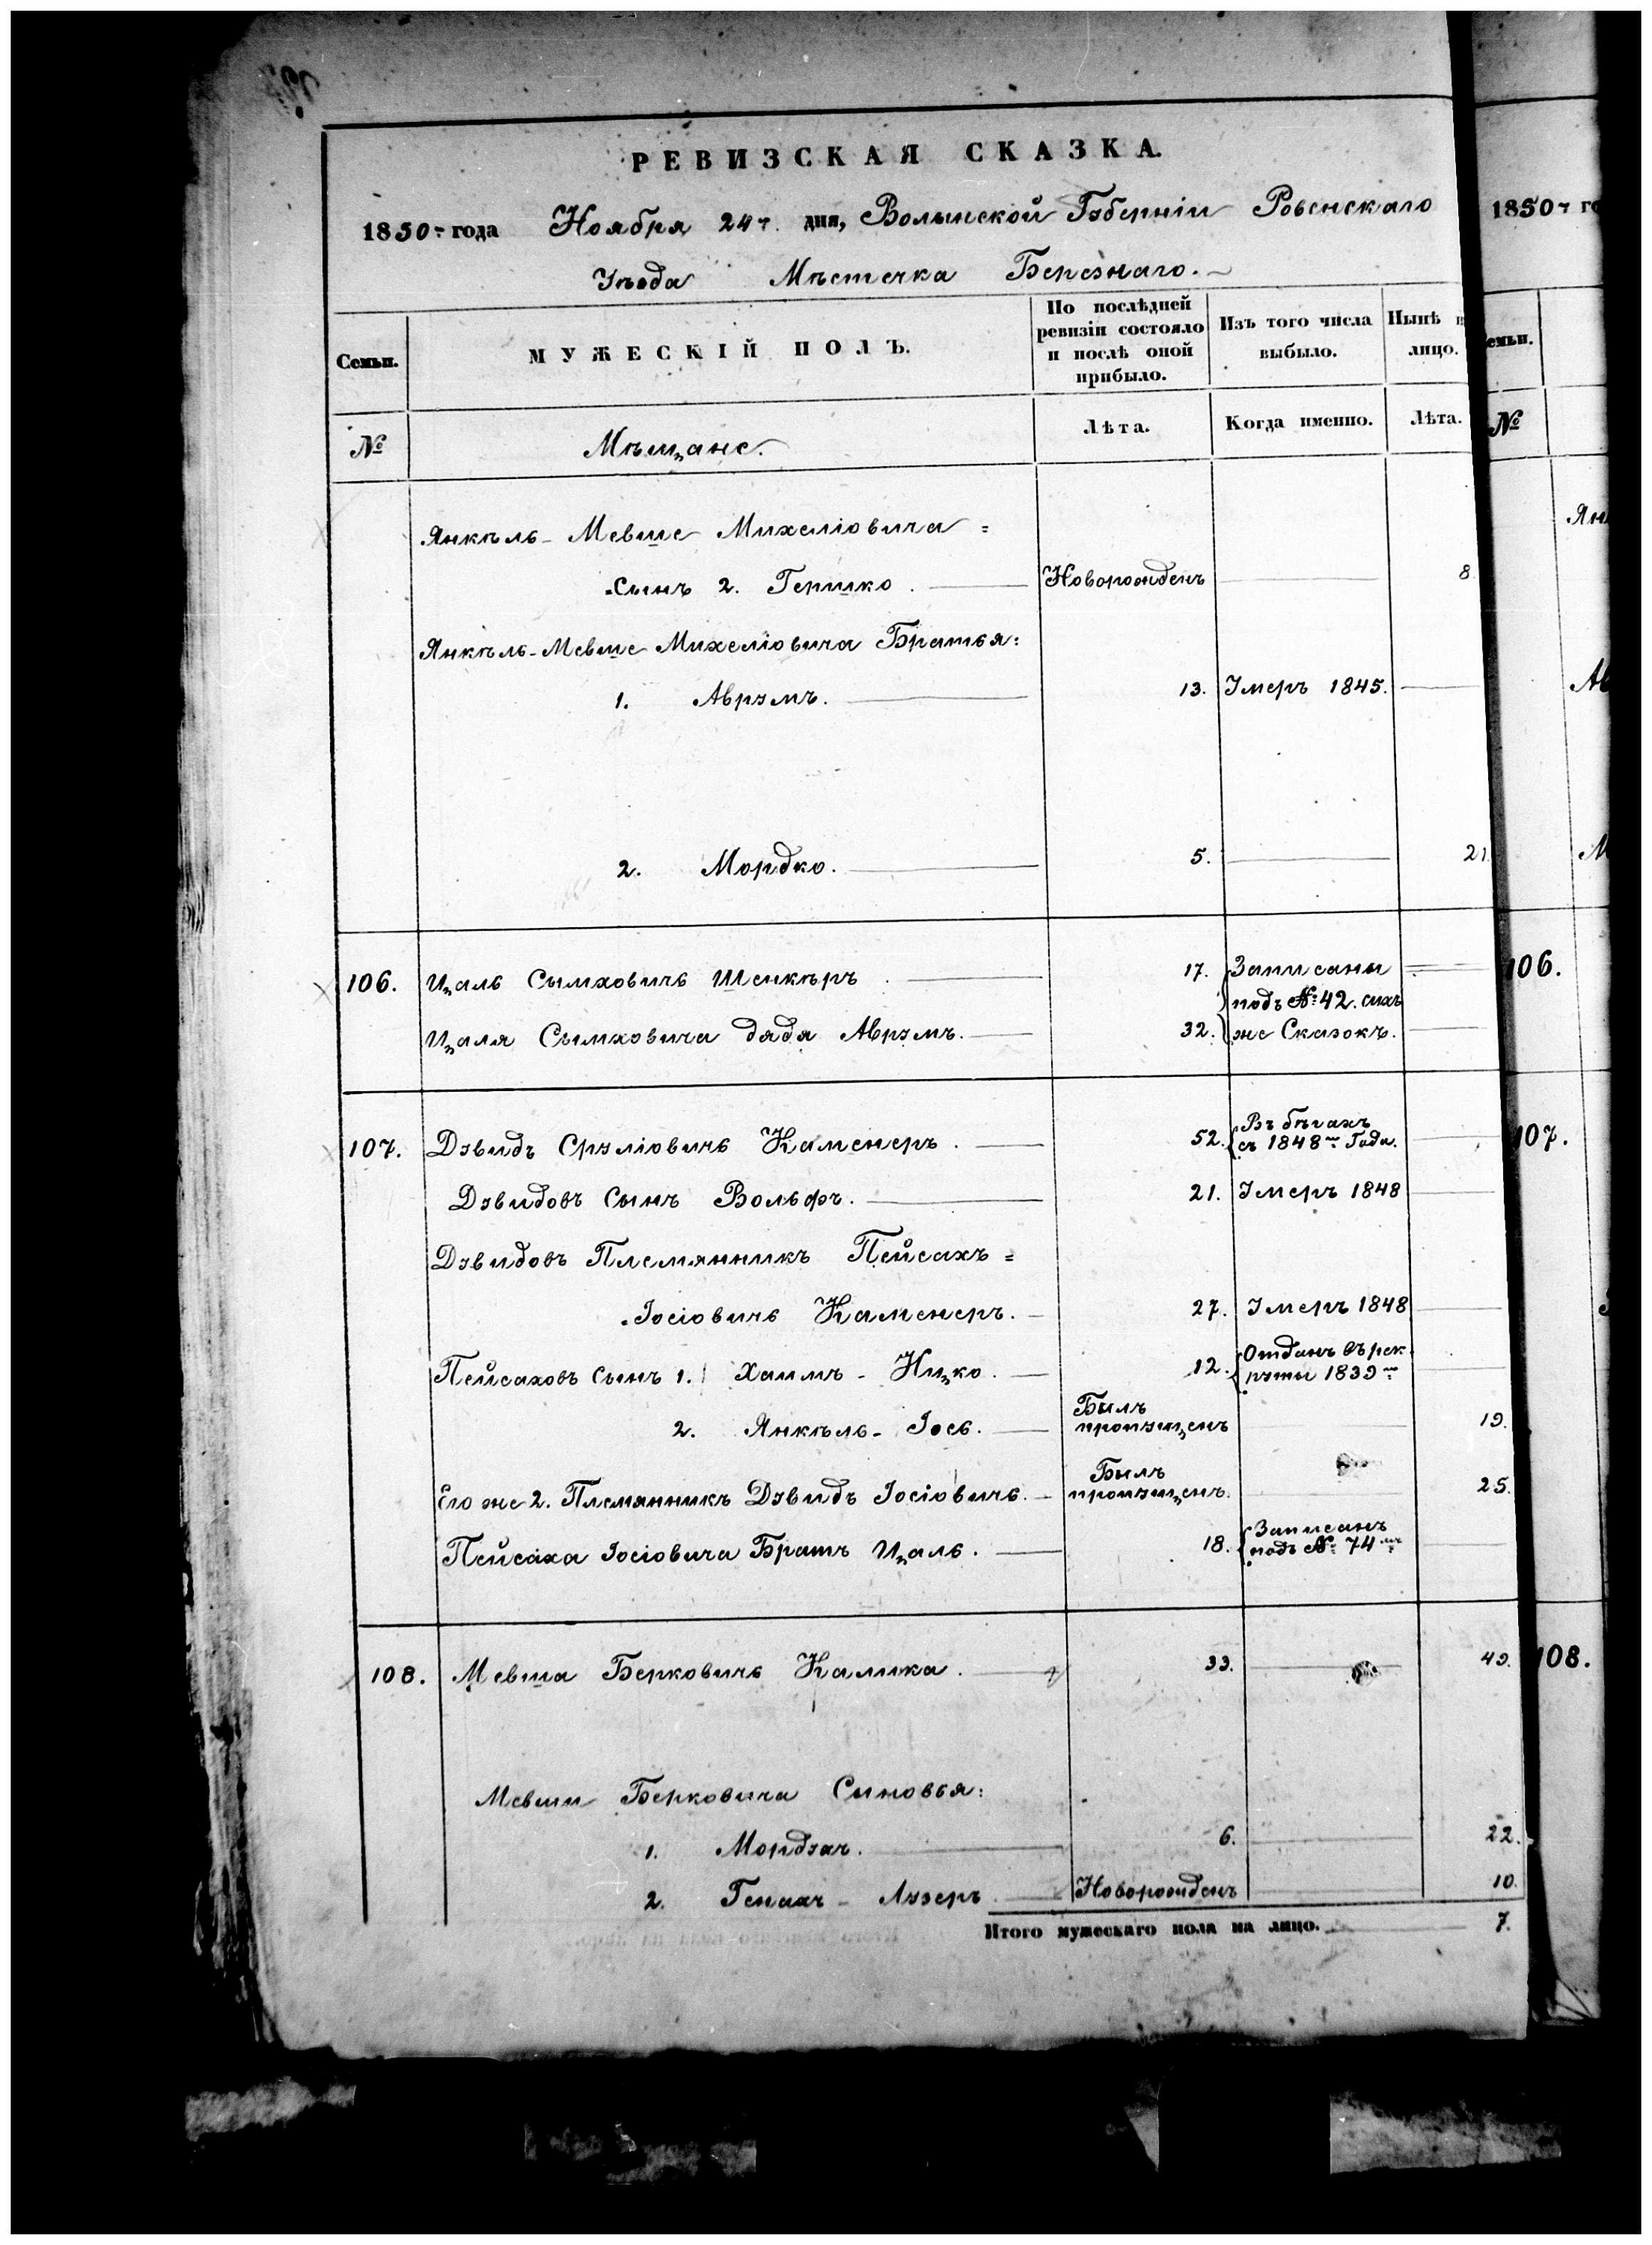 РЕВИЗСКАЯ СКАЗКА.
1850-го года Ноября 24-го дня, Волынской Губерніи Ровенскаго
Уѣзда Мѣстечка Березнаго.
Семьи. МУЖЕСКІЙ ПОЛЪ. По послѣдней ревизіи состояло и послѣ оной прибыло. Изъ того числа выбыло. Нынѣ н лицо.
№ Мѣщане. Лѣта. Когда именно. Лѣта.
Янкѣль-Мевше Михеліовича =
=Сынъ 2. Гершко. Новорожденъ 8
Янкѣль-Мевше Михеліовича Братья:
1. Аврумъ. 13. Умеръ 1845.
2. Мордко. 5. 21
106. Цаль Сымховичъ Шенкѣръ 17. Записаны
подъ №42. сихъ
Цаля Сымховича дядя Аврумъ. 32. же Сказокъ.
107. Дувидъ Сруліовичъ Каменеръ. 52. Въ бѣгахъ
съ 1848го Года.
Дувидовъ Сынъ Вольфъ. 21. Умеръ 1848
Дувидовъ Племянникъ Пейсахъ =
=Іосіовичъ Каменеръ. 27. Умеръ 1848
Пейсаховъ Сынъ 1. Хаимъ - Ицко. 12. Отданъ въ рек
руты 1839го
2. Янкѣль - Іось. Былъ пропущенъ 19.
Его же 2. Племянникъ Дувидъ Іосіовичъ. Былъ пропущенъ. 25.
Пейсаха Іосіовича Братъ Цаль. 18. Записанъ
подъ № 74мъ
108. Мевша Берковичъ Калика. 33. 49.
Мевши Берковича Сыновья:
1. Мордухъ. 6. 22.
2. Генахъ - Лузеръ Новорожденъ 10.
Итого мужескаго пола на лицо. 7.
1850-го го
емьи.
№
Янк
Ав
М
106.
107.
108.